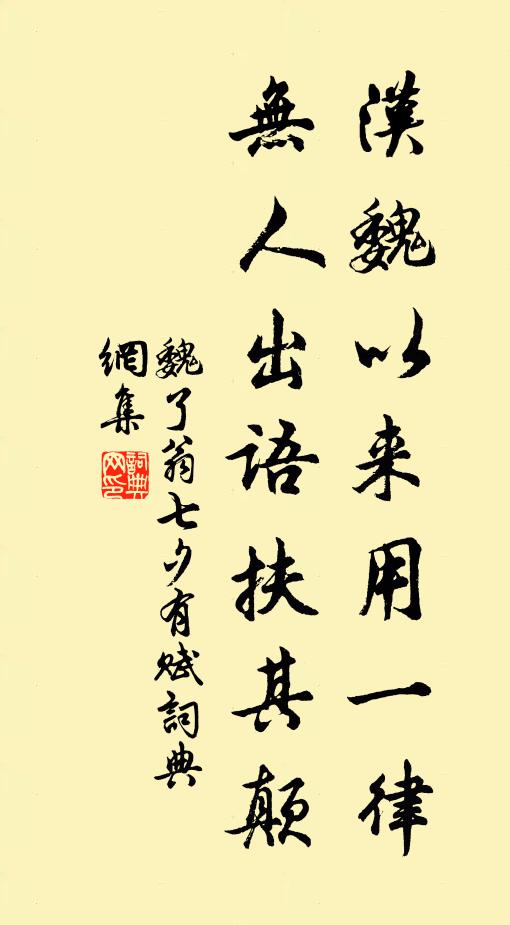 漢魏以来用一律
無人出語扶其顛
魏了翁七夕有賦詞典
網集
詞典網印